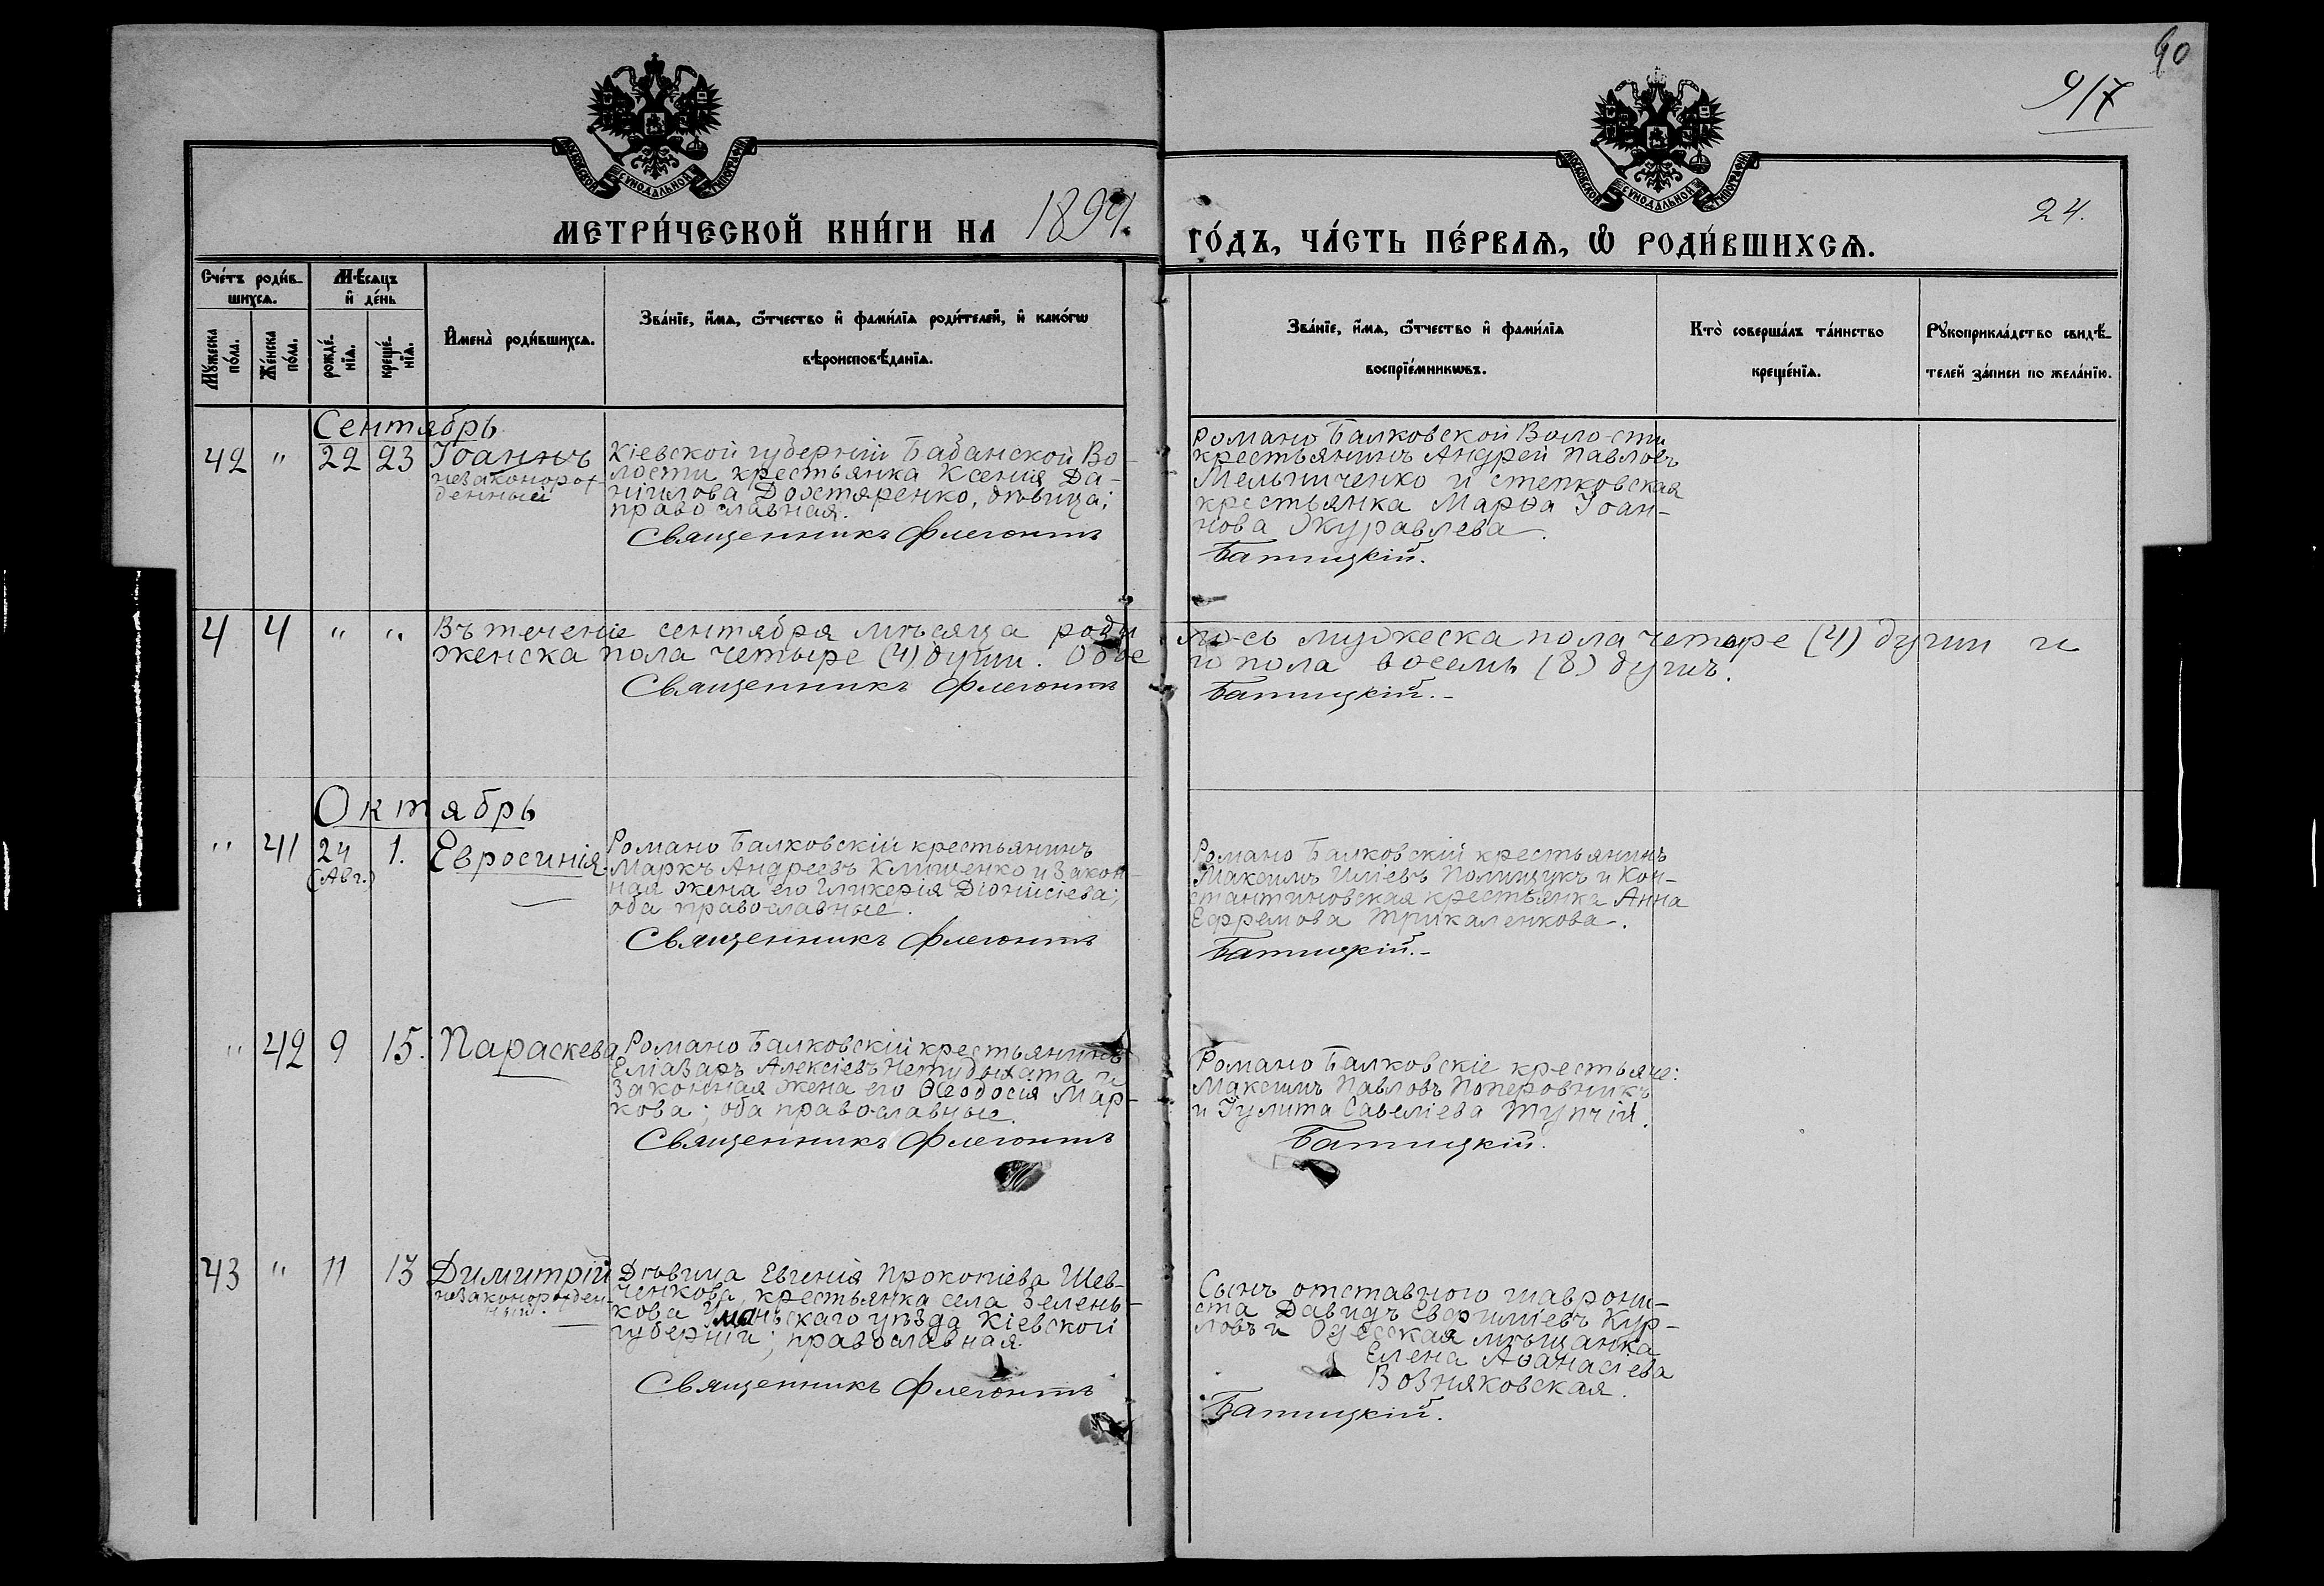 90
917
МОСКОВСКОЙ СѴНОДАЛЬНОЙ ТИПОГРАФІИ
МОСКОВСКОЙ СѴНОДАЛЬНОЙ ТИПОГРАФІИ
24.
МЕТРИ́ЧЕСКОЙ КНИ́ГИ НА 1894.
ГО́ДЪ, ЧА́СТЬ ПЕ́РВАЯ, Ѿ РОДИ́ВШИХСЯ.
Сче́тъ роди́в-
шихся.
Мѣ́сяцъ
и̂ де́нь
Мꙋ́жеска
по́ла.
Же́нска
по́ла.
рожде́-
нїя.
креще́-
нїя.
И̂мена̀ роди́вшихся.
Зва́нїе, и҆́мя, ѻ҆́тчество и̂ фами́лїя роди́телей, и̂ како́гѡ
вѣроисповѣ́данїя.
Зва́нїе, и҆́мя, ѻ҆́тчество и̂ фами́лїя
воспрїе́мникѡвъ.
Кто̀ соверша́лъ та́инство
креще́нїя.
Рꙋкоприкла́дство свидѣ́-
телей за́писи по жела́нїю.
Сентябрь
42 " 22 23 Іоаннъ
незаконорож-
денный
Кіевской губерніи Бабанской Во-
лости крестьянка Ксенія Да-
ніилова Доостяренко, дѣвица;
православная.
Священникъ Флегонтъ
Романо Балковской Волости
крестьянинъ Андрей Павловъ
Мельниченко и степковская
крестьянка Марѳа Іоан-
нова Журавлева.
Батицкій.
4 4 " " Въ теченіе сентября мѣсяца роди лось мужеска пола четыре (4) души и
женска пола четыре (4) души. Обое го пола восемь (8) душъ.
Священникъ Флегонтъ Батицкій.-
Октябрь
" 41 24 1. Евросинія
(Авг.)
Романо Балковскій крестьянинъ
Маркъ Андреевъ Клищенко и закон-
ная жена его Гликерія Діонисіева;
оба православные.
Священникъ Флегонтъ
Романо Балковскій крестьянинъ
Максимъ Иліевъ Полищукъ и Кон-
стантиновская крестьянка Анна
Ефремова Трикаленкова.
Батицкій.-
" 42 9 15. Параскева
Романо Балковскій крестьянинъ
Елиазаръ Алексіевъ Нетудыхата и
законная жена его Ѳеодосія Мар-
кова; оба православные.
Священникъ Флегонтъ
Романо Балковскіе крестьяне:
Максимъ Павловъ Поперовникъ
и Іулита Савеліева Тупчій.
Батицкій.
43 " 11 13 Димитрій
незаконорожден-
ный.
Дѣвица Евгенія Прокопіева Шев-
ченкова, крестьянка села Зелень-
кова Уманьскаго уѣзда Кіевской
губерніи; православная.
Священникъ Флегонтъ
Сынъ отставного
Давидъ Евфиміевъ Кур-
ловъ и Одесская мѣщанка
Елена Аѳанасіева
Возняковская.
Батицкій.